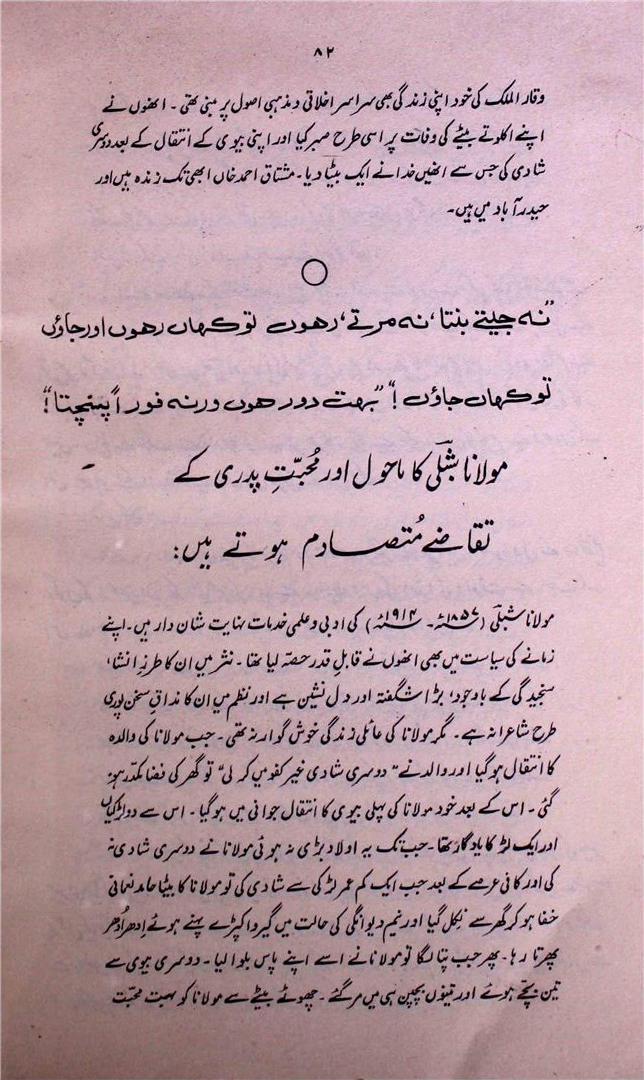 ۸۲
وقار الملک کی خود اپنی زندگی بھی سراسر اخلاقی و مذہبی اصول پر مبنی تھی ۔ انھوں نے
اپنے اکلوتے بیٹے کی وفات پر اسی طرح صبر کیا اور اپنی بیوی کے انتقال کے بعد دوسری
شادی کی جس سے انھیں خدا نے ایک بیٹا دیا۔ مشتاق احمد خاں ابھی تک زندہ ہیں اور
حیدر آباد میں ہیں۔
"نہ جیتے بنتا، نہ مرتے، رھوں تو کہاں رھوں اور جاؤں
تو کہاں جاؤں!" "بہت دور ھوں ورنہ فوراً پہنچتا!"
مولانا شبلیؔ کا ماحول اور محبّتِ پدری کے
تقاضے مُتصادم ہوتے ہیں:
مولانا شبلیؔ (۱۸۵۷ء۔ ۱۹۱۴ء) کی ادبی و علمی خدمات نہایت شان دار ہیں۔ اپنے
زمانے کی سیاست میں بھی انھوں نے قابلِ قدر حصّہ لیا تھا۔ نثر میں ان کا طرزِ انشا،
سنجیدگی کے باوجود، بڑا شگفتہ اور دل نشین ہے اور نظم میں ان کا مذاقِ سخن پوری
طرح شاعرانہ ہے۔ مگر مولانا کی عائلی زندگی خوش گوار نہ تھی۔ جب مولانا کی والدہ
کا انتقال ہوگیا اور والد نے "دوسری شادی غیر کفو میں کر لی" تو گھر کی فضا مکدّر ہو
گئی۔ اس کے بعد خود مولانا کی پہلی بیوی کا انتقال جوانی میں ہوگیا۔ اس سے دو لڑکیاں
اور ایک لڑکا یادگار تھا۔ جب تک یہ اولاد بڑی نہ ہوئی مولانا نے دوسری شادی نہ
کی اور کافی عرصے کے بعد جب ایک کم عمر لڑکی سے شادی کی تو مولانا کا بیٹا حامد نعمانی
خفا ہو کر گھر سے نکل گیا اور نیم دیوانگی کی حالت میں گیروا کپڑے پہنے ہوئے اِدھر اُدھر
پھرتا رہا۔ پھر جب پتا لگا تو مولانا نے اسے اپنے پاس بلوا لیا۔ دوسری بیوی سے
تین بچّے ہوئے اور تینوں بچپن ہی میں مر گئے۔ چھوٹے بیٹے سے مولانا کو بہت محبّت